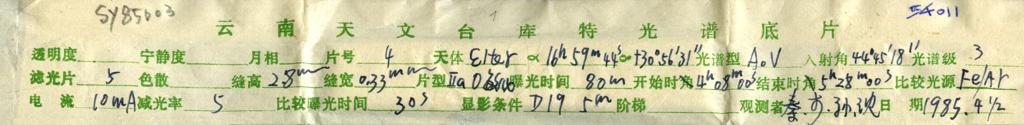 SY85003 1 54011
云南天文台库特光谱底片
透明度 宁静度 月相 片号 4 天体 ε Her α 16h59m44s δ +30°56′31″ 光谱型 A0V 入射角 44°45′18″ 光谱级 3
滤光片 5 色散 缝高 28mm 缝宽 0.33mm 片型 IIaO 曝光时间 80m 开始时刻 4h08m00s 结束时刻 5h28m00s 比较光源 Fe/Ar
电流 10mA 减光率 5 比较曝光时间 30s 显影条件 D19 5m 阶梯 观测者 秦 日期 1985.4 1/2